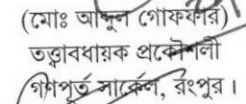 (মোঃ আব্দুল গোফফার)
তত্ত্বাবধায়ক প্রকৌশলী
গণপূর্ত সার্কেল, রংপুর।